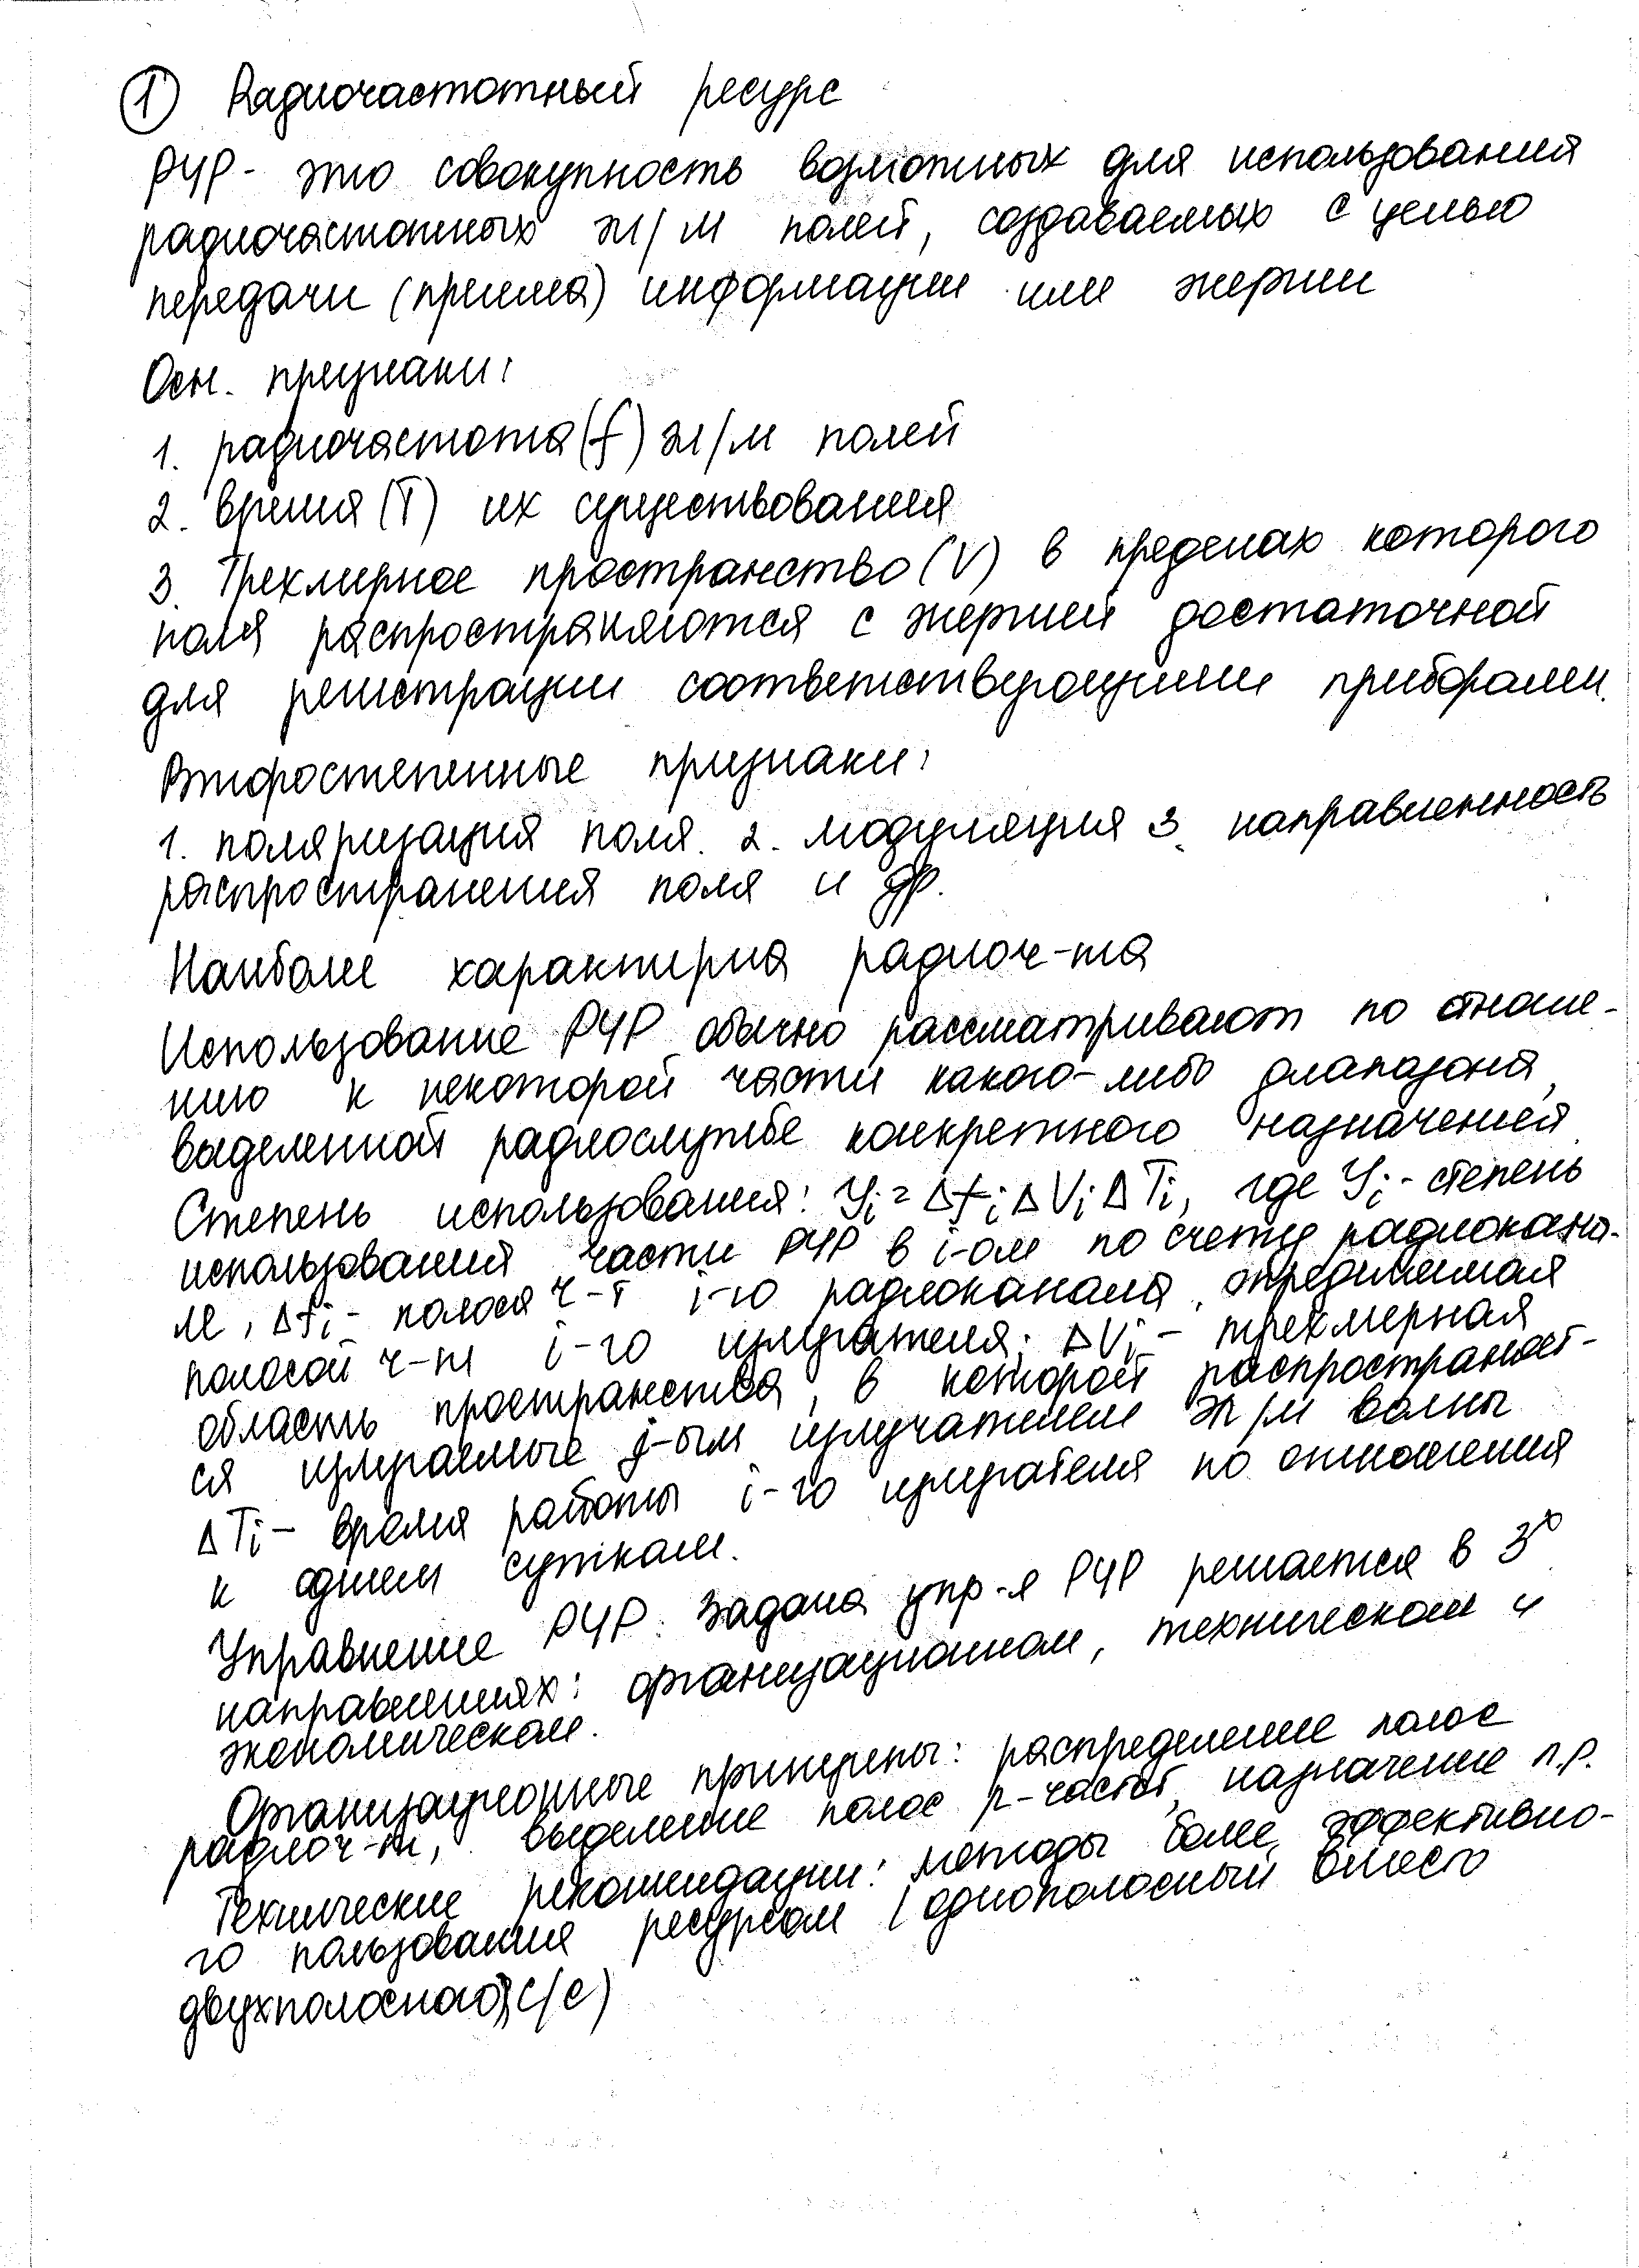 ① Радиочастотный ресурс
РЧР - это совокупность возможных для использования
радиочастотных эл/м полей, создаваемых с целью
передачи (приема) информации или энергии
Осн. признаки:
1. радиочастота (f) эл/м полей
2. время (T) их существования
3. Трехмерное пространство (V) в пределах которого
поля распространяются с энергией достаточной
для регистрации соответствующими приборами.
Второстепенные признаки:
1. поляризация поля. 2. модуляция 3. направленность
распространения поля и др.
Наиболее характерна радиоч-та
Использование РЧР обычно рассматривают по отноше-
нию к некоторой части какого-либо диапазона,
выделенной радиослужбе конкретного назначения.
Степень использования: Yi = Δfi ΔVi ΔTi, где Yi - степень
использования части РЧР в i-ом по счету радиокана-
ле, Δfi - полоса ч-т i-го радиоканала, определяемая
полосой ч-т i-го излучателя; ΔVi - трехмерная
область пространства, в которой распространяют-
ся излучаемые j-ым излучателем эл/м волны
ΔTi - время работы i-го излучателя по отношения
к одним суткам.
Управление РЧР. Задача упр-я РЧР решается в 3х
направлениях: организационном, техническом и
экономическом.
Организационные принципы: распределение полос
радиоч-т, выделение полос р-частот, назначение п.р.
Технические рекомендации: методы более эффективно-
го пользования ресурсом (однополосный вместо
двухполосного с/с)